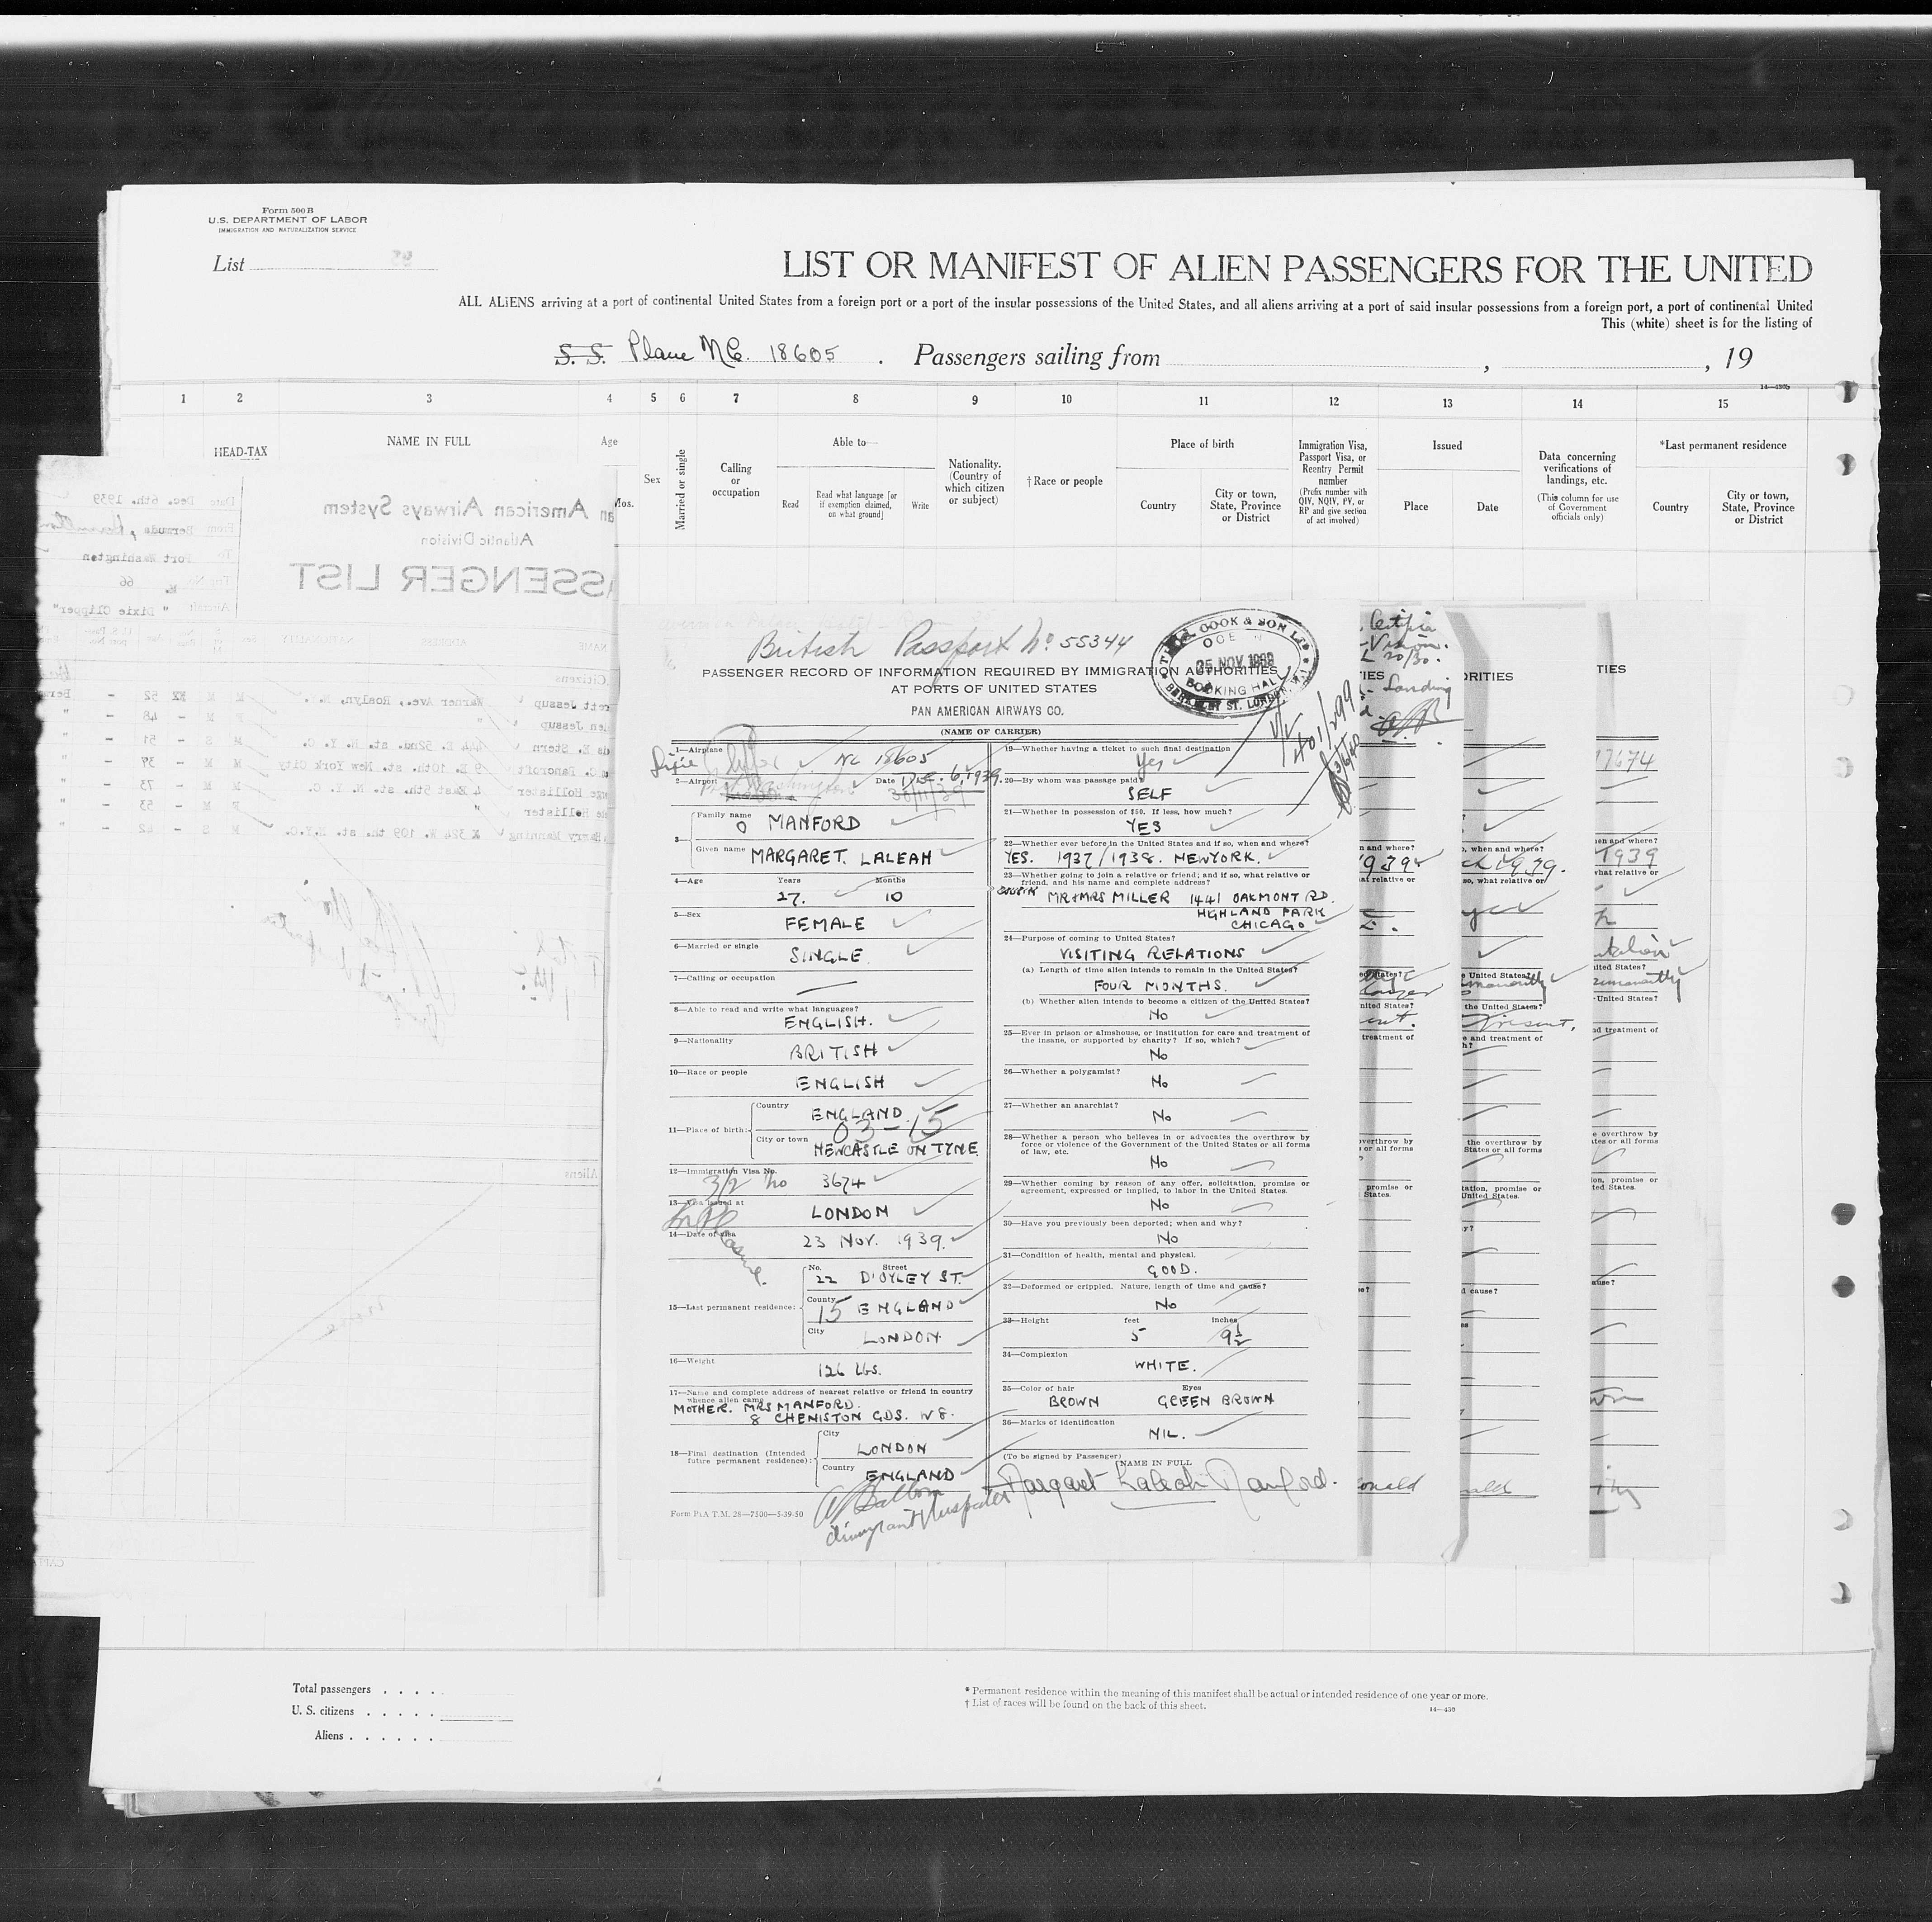 Form 500 B
U.S. DEPARTMENT OF LABOR
IMMIGRATION AND NATURALIZATION SERVICE
List
LIST OR MANIFEST OF ALIEN PASSENGERS FOR THE UNITED
ALL ALIENS arriving at a port of continental United States from a foreign port or a port of the insular possessions of the United States, and all aliens arriving at a port of said insular possessions from a foreign port, a port of continental United
This (white) sheet is for the listing of
S. S. Plane NC. 18605 . Passengers sailing from , , 19
1 2 3 4 5 6 7 8 9 10 11 12 13 14 15
HEAD-TAX
NAME IN FULL
Age
Mos.
Sex
Married or single
Calling or occupation
Able to—
Read
Read what language [or if exemption claimed, on what ground]
Write
Nationality. (Country of which citizen or subject)
†Race or people
Place of birth
Country
City or town, State, Province or District
Immigration Visa, Passport Visa, or Reentry Permit number
(Prefix number with QIV, NQIV, PV, or RP and give section of act involved)
Issued
Place
Date
Data concerning verifications of landings, etc.
(This column for use of Government officials only)
*Last permanent residence
Country
City or town, State, Province or District
Date Dec. 6th. 1939
From Bermuda, Hamilton
To Port Washington
66
Aircraft "Dixie Clipper"
an American Airways System
Atlantic Division
ASSENGER LIST
NAME
ADDRESS
NATIONALITY
Citizens
rett Jessup Warner Ave., Roslyn, N.Y. M M 52 -
en Jessup " F M - 48 - "
E. Stern 444 E. 52nd. st. N. Y. C. M S - 51 - "
C. Bancroft 9 E. 10th. st. New York City M M - 37 - "
ge Hollister 4 East 5th. st. N. Y. C. M M - 73 - "
Hollister " F M - 53 - "
Harry Manning 324 W. 109 th. st. N.Y.C. M S - 42 - "
Aliens
none
British Passport No 55344
THOS. COOK & SON LTD
25 NOV 1939
BOOKING HALL
BERKELEY ST. LONDON, W.1
PASSENGER RECORD OF INFORMATION REQUIRED BY IMMIGRATION AUTHORITIES
AT PORTS OF UNITED STATES
PAN AMERICAN AIRWAYS CO.
(NAME OF CARRIER)
1—Airplane
Dixie Clipper NC 18605
2—Airport Port Washington Date Dec. 6, 1939.
30/11/39
3— Family name
MANFORD
Given name
MARGARET. LALEAH
4—Age Years Months
27. 10
5—Sex
FEMALE
6—Married or single
SINGLE
7—Calling or occupation
8—Able to read and write what languages?
ENGLISH.
9—Nationality
BRITISH
10—Race or people
ENGLISH
11—Place of birth: Country
ENGLAND
03-15
City or town
NEWCASTLE ON TYNE
12—Immigration Visa No.
3/2 no 3674
13—Visa issued at
LONDON
14—Date of visa
23 NOV. 1939.
15—Last permanent residence: No. Street
22 D'OYLEY ST.
County
15 ENGLAND
City
LONDON
16—Weight
126 lbs.
17—Name and complete address of nearest relative or friend in country whence alien came
MOTHER. MRS MANFORD.
8 CHENISTON GDS. W8.
18—Final destination (Intended future permanent residence): City
LONDON
Country
ENGLAND
Form PAA T.M. 28—7500—5-39-50
Immigrant Inspector
19—Whether having a ticket to such final destination
Yes
20—By whom was passage paid?
SELF
21—Whether in possession of $50. If less, how much?
YES
22—Whether ever before in the United States and if so, when and where?
YES. 1937/1938. NEWYORK.
23—Whether going to join a relative or friend; and if so, what relative or friend, and his name and complete address?
COUSIN MR & MRS MILLER 1441 OAKMONT RD.
HIGHLAND PARK
CHICAGO
24—Purpose of coming to United States?
VISITING RELATIONS
(a) Length of time alien intends to remain in the United States?
FOUR MONTHS.
(b) Whether alien intends to become a citizen of the United States?
No
25—Ever in prison or almshouse, or institution for care and treatment of the insane, or supported by charity? If so, which?
No
26—Whether a polygamist?
No
27—Whether an anarchist?
No
28—Whether a person who believes in or advocates the overthrow by force or violence of the Government of the United States or all forms of law, etc.
No
29—Whether coming by reason of any offer, solicitation, promise or agreement, expressed or implied, to labor in the United States.
No
30—Have you previously been deported; when and why?
No
31—Condition of health, mental and physical.
GOOD.
32—Deformed or crippled. Nature, length of time and cause?
No
33—Height feet inches
5 9½
34—Complexion
WHITE.
35—Color of hair Eyes
BROWN GREEN BROWN
36—Marks of identification
NIL.
(To be signed by Passenger) NAME IN FULL
Margaret Laleah Manford.
Total passengers . . . .
U. S. citizens . . . . .
Aliens . . . . . .
* Permanent residence within the meaning of this manifest shall be actual or intended residence of one year or more.
† List of races will be found on the back of this sheet.
14—430